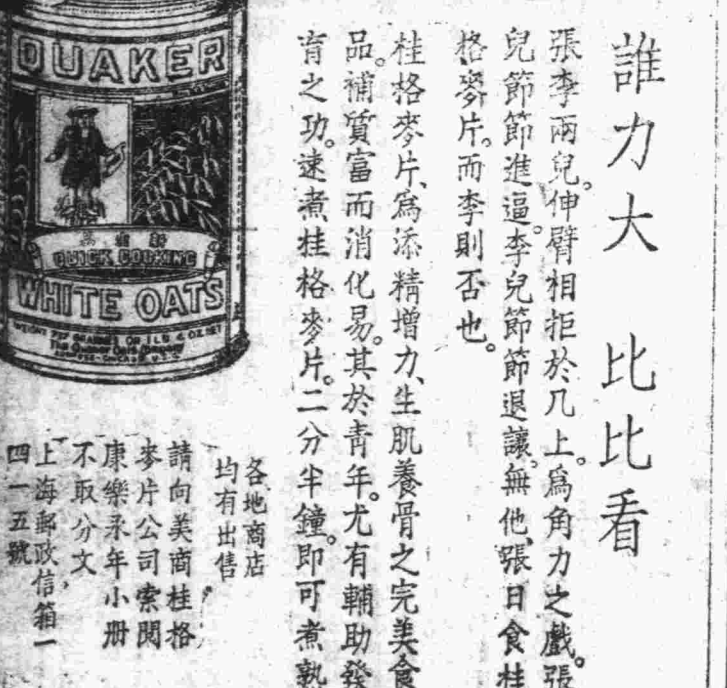 誰力大 比比看
張李兩兒。伸臂相拒於几上。爲角力之戲。張
兒節節進逼。李兒節節退讓。無他、張日食桂
格麥片。而李則否也。
桂格麥片、爲添精增力、生肌養骨之完美食
品。補質富而消化易。其於青年。尤有輔助發
育之功。速煮桂格麥片。二分半鐘。即可煮熟
各地商店
均有出售
請向美商桂格
麥片公司索閱
康樂永年小册
不取分文
上海郵政信箱一
四一五號
QUAKER
QUICK COOKING
WHITE OATS